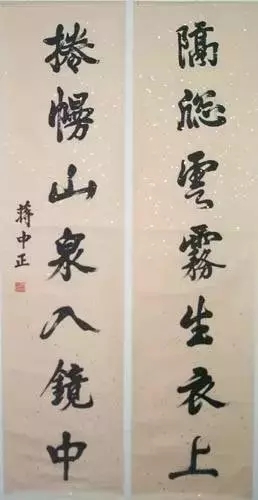 隔窗雲霧生衣上
捲幔山泉入鏡中
蔣中正